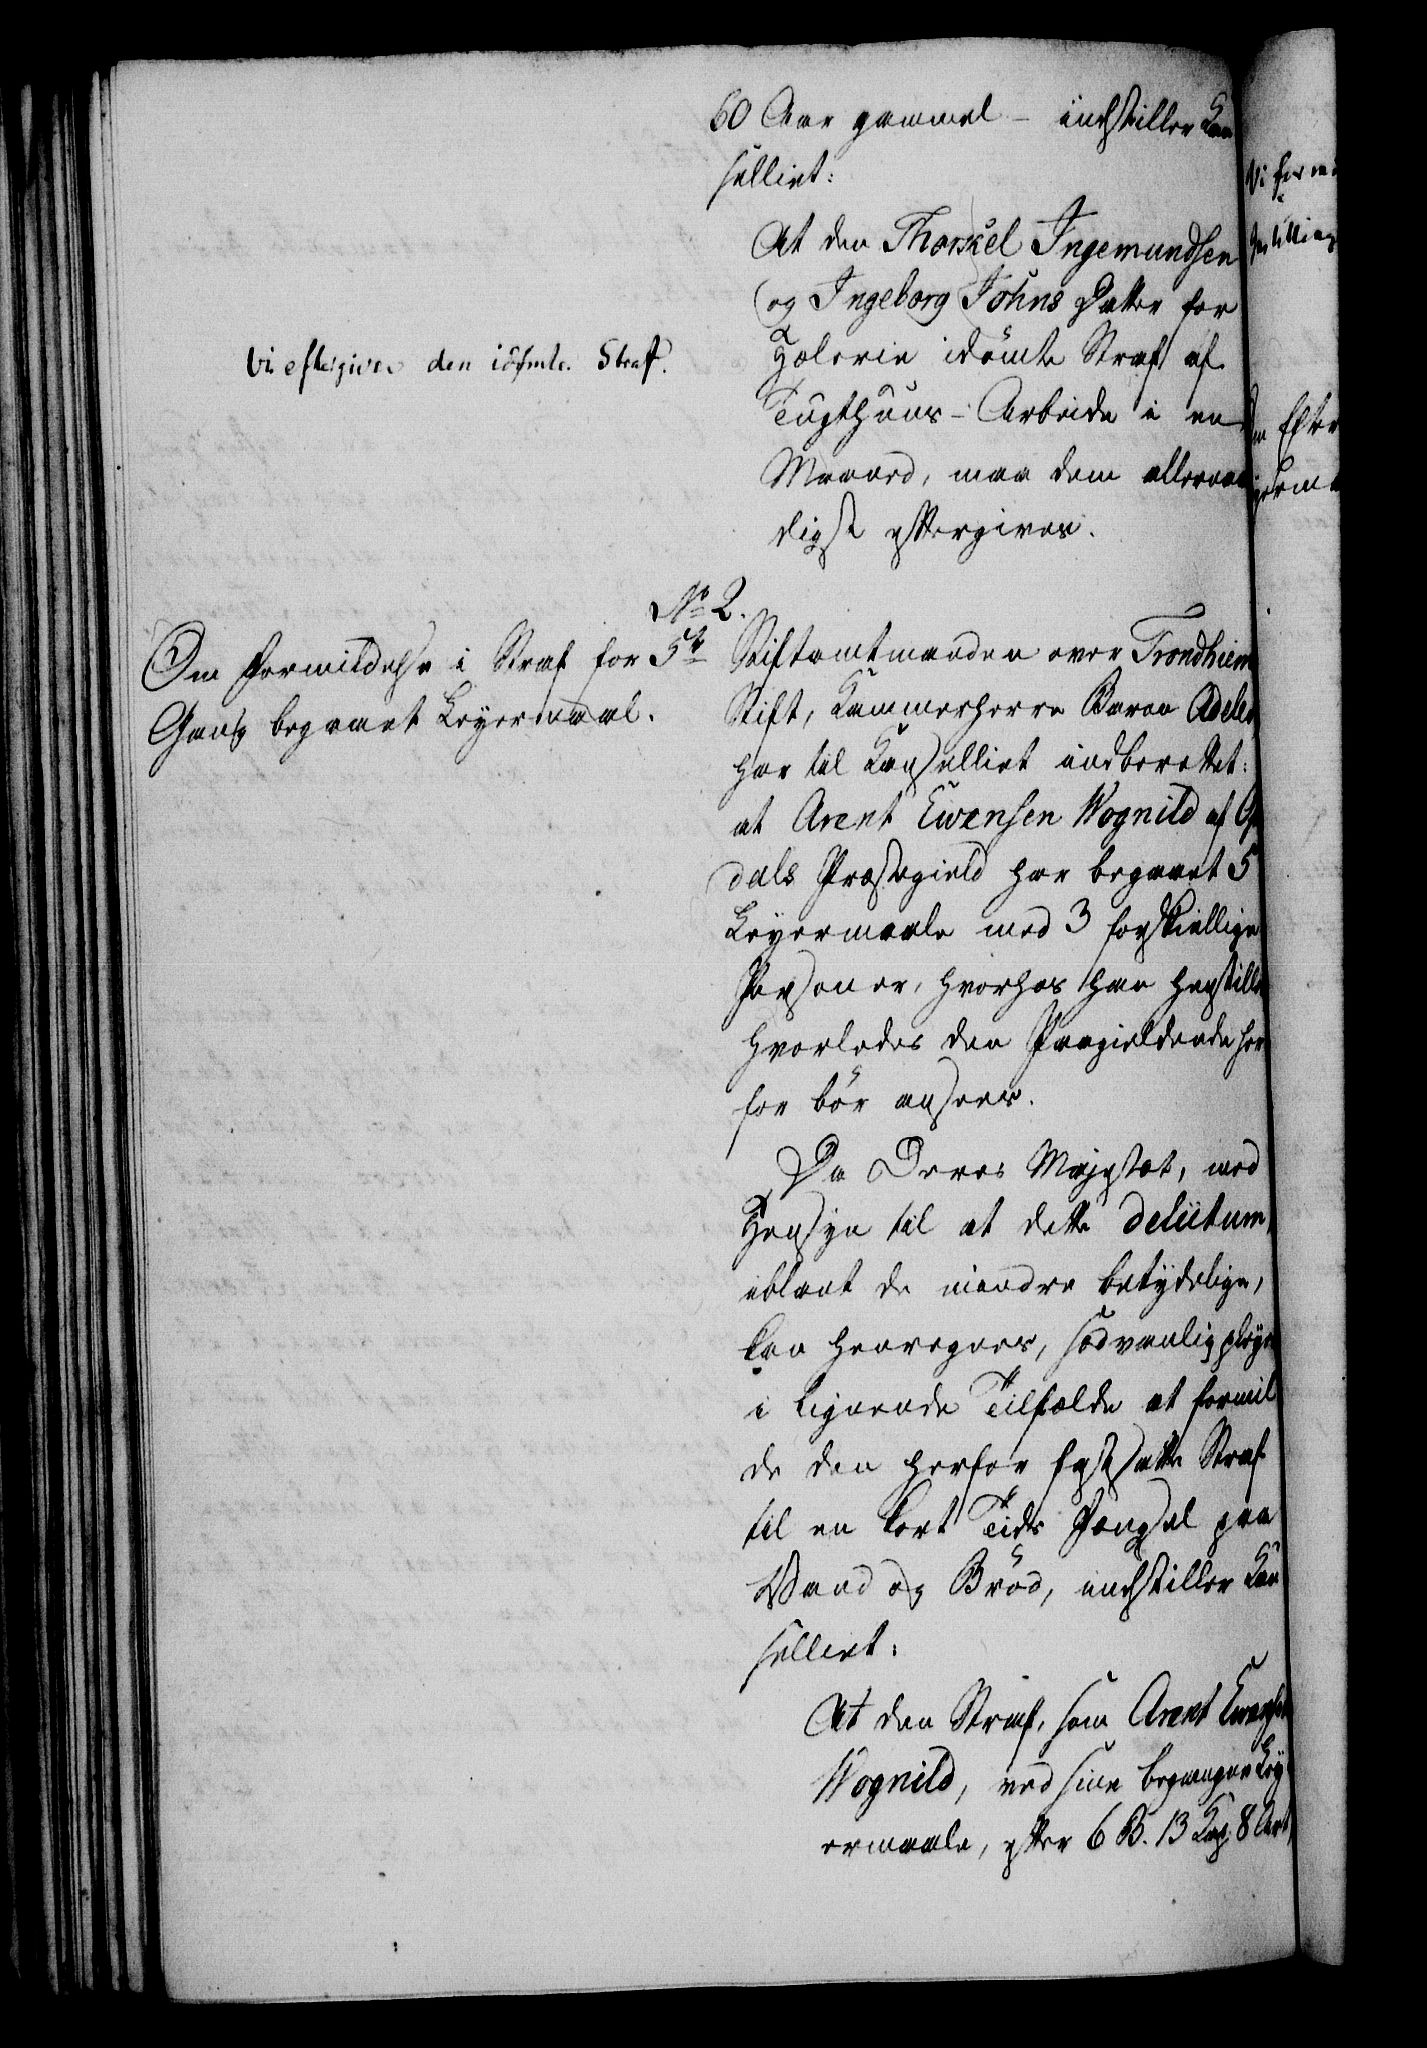 60 Aar gammel – indstiller Kan
selliet:
At den Thorkel Ingemundsen
og Ingeborg Johns Datter for
Hælerie idømte Straf af
Tugthuus-Arbeide i en
Maaned, maa dem allernaa
digst eftergives.
Vi eftergive den idömte Straf.
No 2.
Om Formildelse i Straf for 5te
Gang begaaet Leyermaal.
Stiftamtmanden over Trondhiem
Stift, Kammerherre Baron Adeler
har til Canselliet indberettet:
at Arent Ewensen Wognild af Op
dals Præstegield har begaaet 5
Leyermaale med 3 forskiellige
Personer, hvorhos han henstiller
hvorledes den Paagieldende her
for bör ansees.
Da Deres Majestæt, med
Hensyn til at dette delictum,
iblant de mindre betydelige,
kan henregnes, sædvanlig pleye
i lignende Tilfælde at formil
de den herfor fastsatte Straf
til en kort Tids Fængsel paa
Vand og Bröd, indstiller Kan
selliet:
At den Straf, som Arent Ewensen
Wognild, ved sine begangne Ley
ermaale, efter 6 B. 13 Cap. 8 Art,